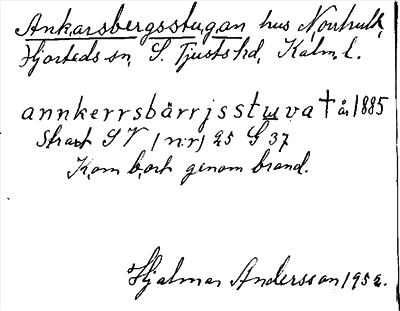 Ankarsbergsstugan hus Norrhult,
Hjorteds sn, S. Tjusts hd, Kalm. l.
annkerrsbärrjsstuva † år 1885
Strax SV (nr) 25 G 37
Kom bort genom brand.
Hjalmar Andersson 1952.